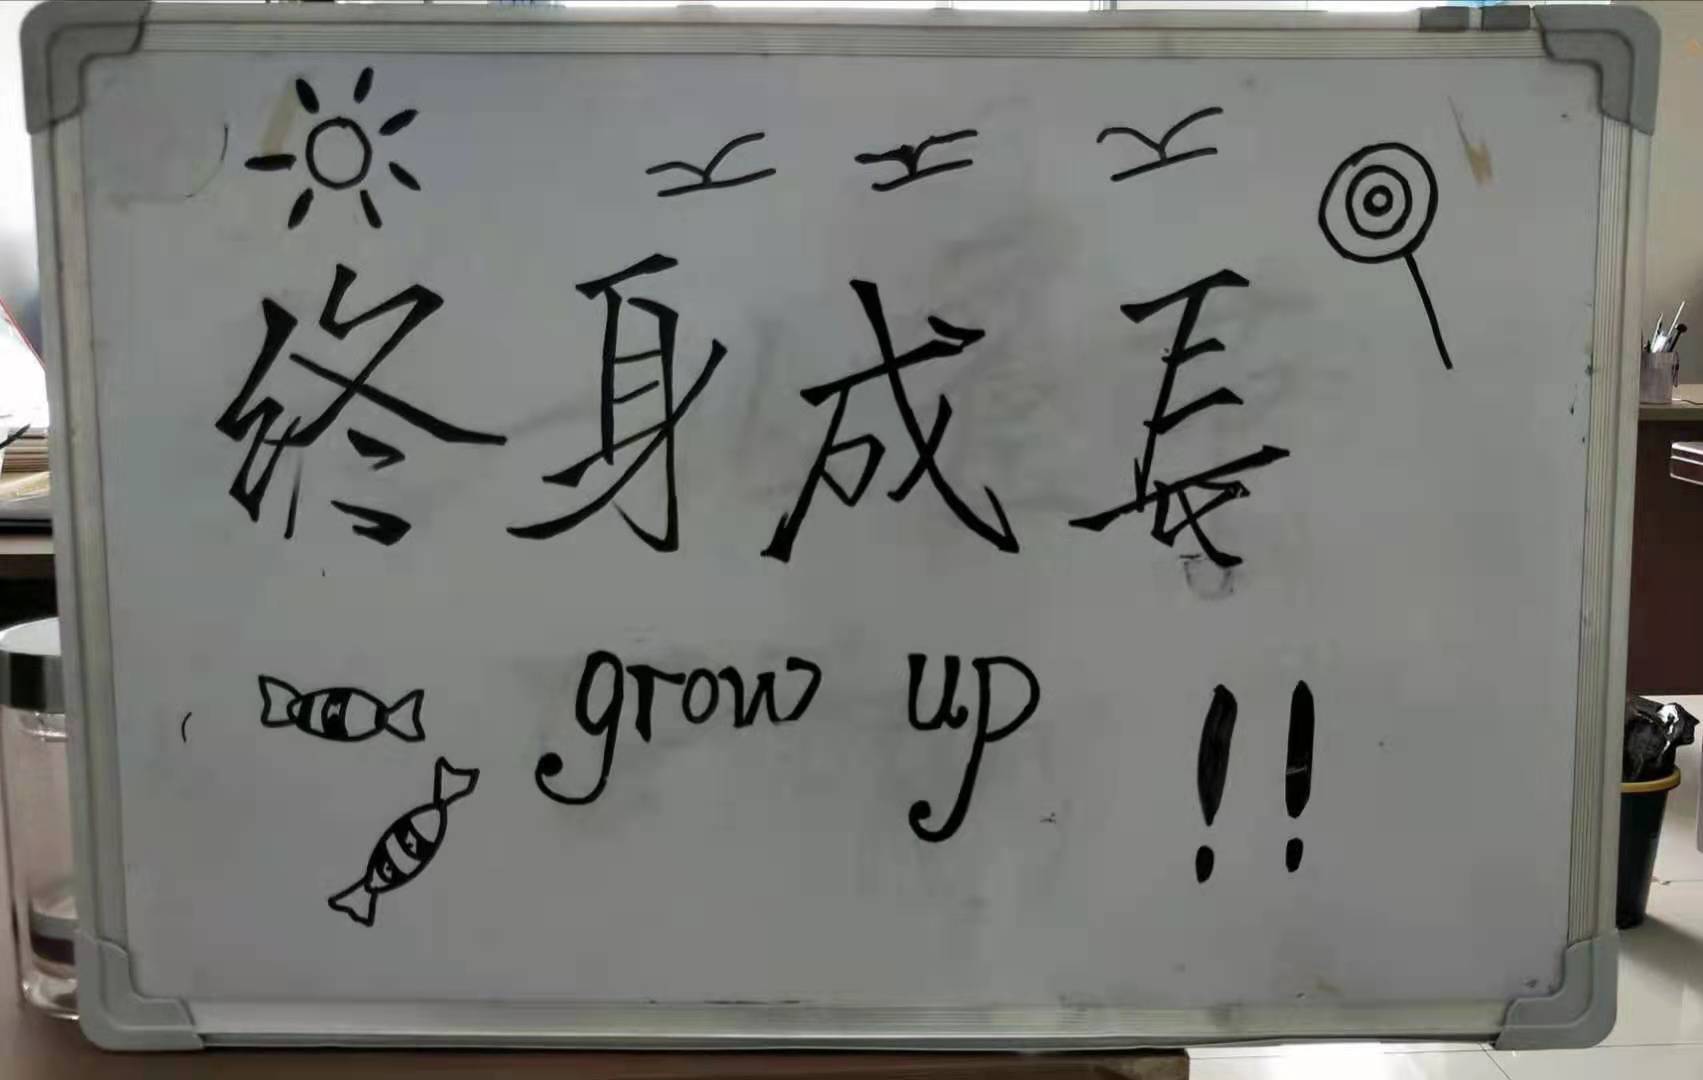 终身成長
grow up !!